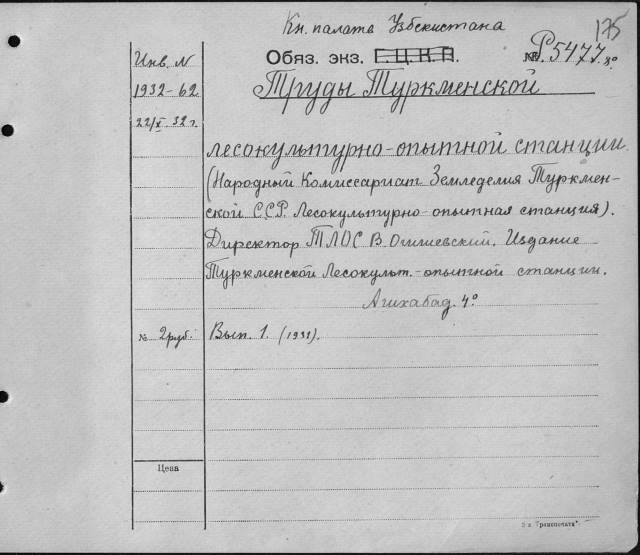 Кн. палата Узбекистана
175
Обяз. экз. Г.Ц.К.П.
№ Р5477 8°
Инв. N
1932-62
22/X 32 г.
Труды Туркменской
лесокультурно-опытной станции.
(Народный Комиссариат Земледелия Туркмен-
ской ССР. Лесокультурно-опытная станция).
Директор ТЛОС В. Огиевский. Издание
Туркменской Лесокульт.-опытной станции.
Ашхабад. 4°
№ 2 руб.
Вып. 1. (1931).
Цена